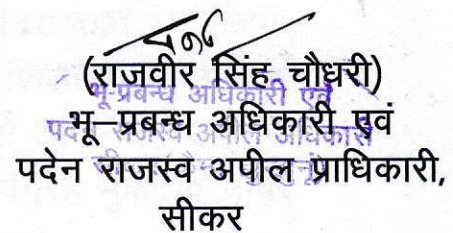 (राजवीर सिंह चौधरी)
भू–प्रबन्ध अधिकारी एवं
पदेन राजस्व अपील प्राधिकारी,
सीकर
भू-प्रबन्ध अधिकारी एवं
पदेन राजस्व अपील अधिकारी